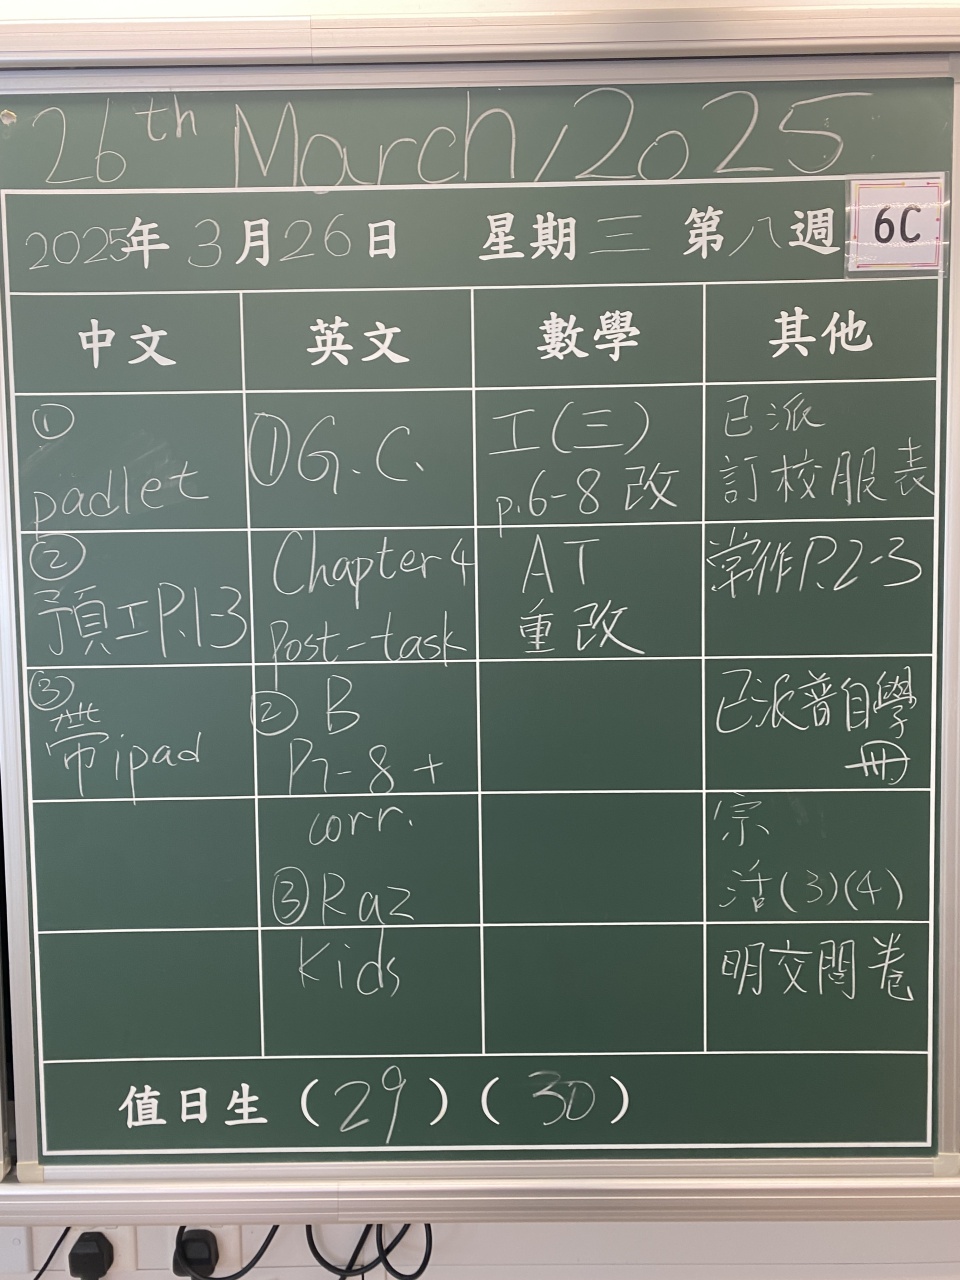 26th March, 2025
2025年3月26日 星期三 第八週 6C
中文 英文 數學 其他
①
padlet
②
預工P.1-3
③
帶ipad
①G.C.
Chapter 4
Post-task
② B
P7-8 +
corr.
③Raz
Kids
工(三)
p.6-8 改
AT
重改
已派
訂校服表
常作P.2-3
已派普自學
冊
宗
活(3)(4)
明交問卷
值日生(29)(30)